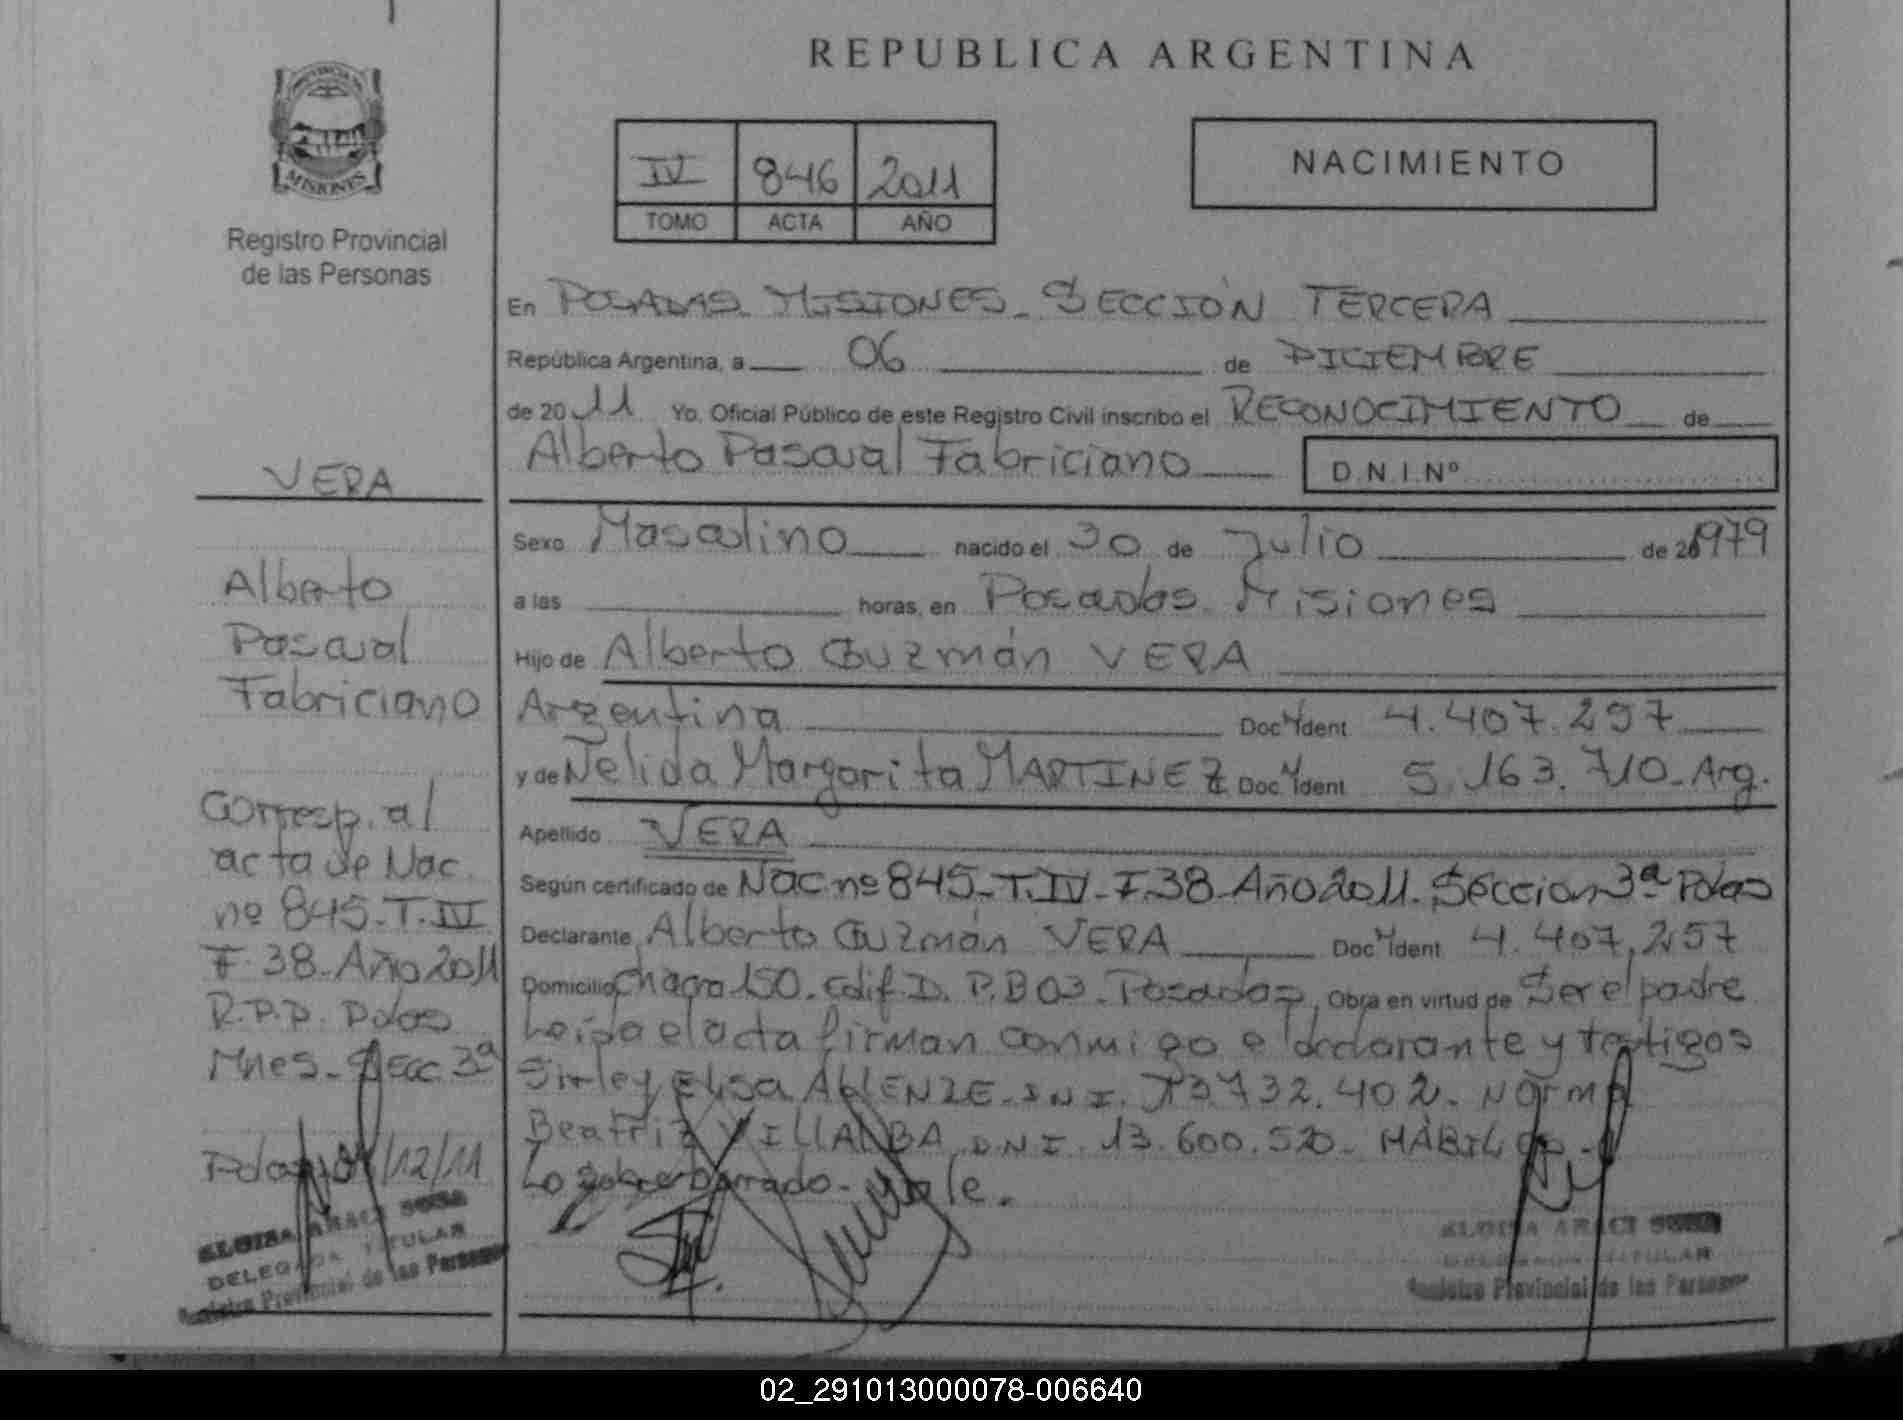 REPUBLICA ARGENTINA
PROVINCIA DE
MISIONES
Registro Provincial
de las Personas
IV 846 2011
TOMO ACTA AÑO
NACIMIENTO
En POSADAS MISIONES - SECCIÓN TERCERA
República Argentina, a 06 de DICIEMBRE
de 2011 Yo, Oficial Público de este Registro Civil inscribo el RECONOCIMIENTO de
Alberto Pascual Fabriciano D.N.I.Nº
Sexo Masculino nacido el 30 de Julio de 1979
a las horas, en Posadas Misiones
Hijo de Alberto Guzmán VERA
Argentina Doc. Ident 4.407.257
y de Nelida Margarita MARTINEZ Doc. Ident 5.163.710-Arg.
Apellido VERA
Según certificado de Nac nº 845-T.IV-F.38-Año 2011. Sección 3ª Pdas
Declarante Alberto Guzmán VERA Doc. Ident 4.407.257
Domicilio Chacra 150. Edif. D. P.B 03 - Posadas, Obra en virtud de Ser el padre
Leida el acta firman conmigo el declarante y testigos
Sirley Elisa D.N.I. 13.732.402 - Norma
Beatriz VILLALBA D.N.I. 13.600.520 - HÁBILES
Lo sobreborrado - vale.
VERA
Alberto
Pascual
Fabriciano
Corresp. al
acta de Nac
nº 845-T.IV
F.38-Año 2011
R.P.P. Pdas
Mnes-Secc. 3ª
Pdas /12/11
ELOISA ARACI SOSA
DELEGADA TITULAR
Registro Provincial de las Personas
ELOISA ARACI SOSA
DELEGADA TITULAR
Registro Provincial de las Personas
02_291013000078-006640